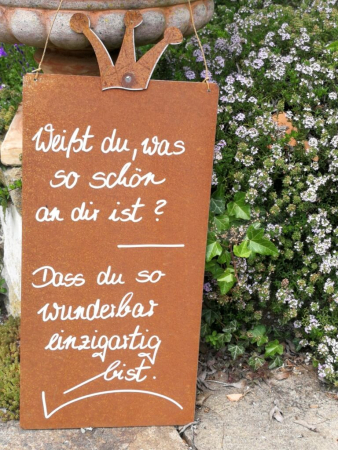 Weißt du, was
so schön
an dir ist?
Dass du so
wunderbar
einzigartig
bist.